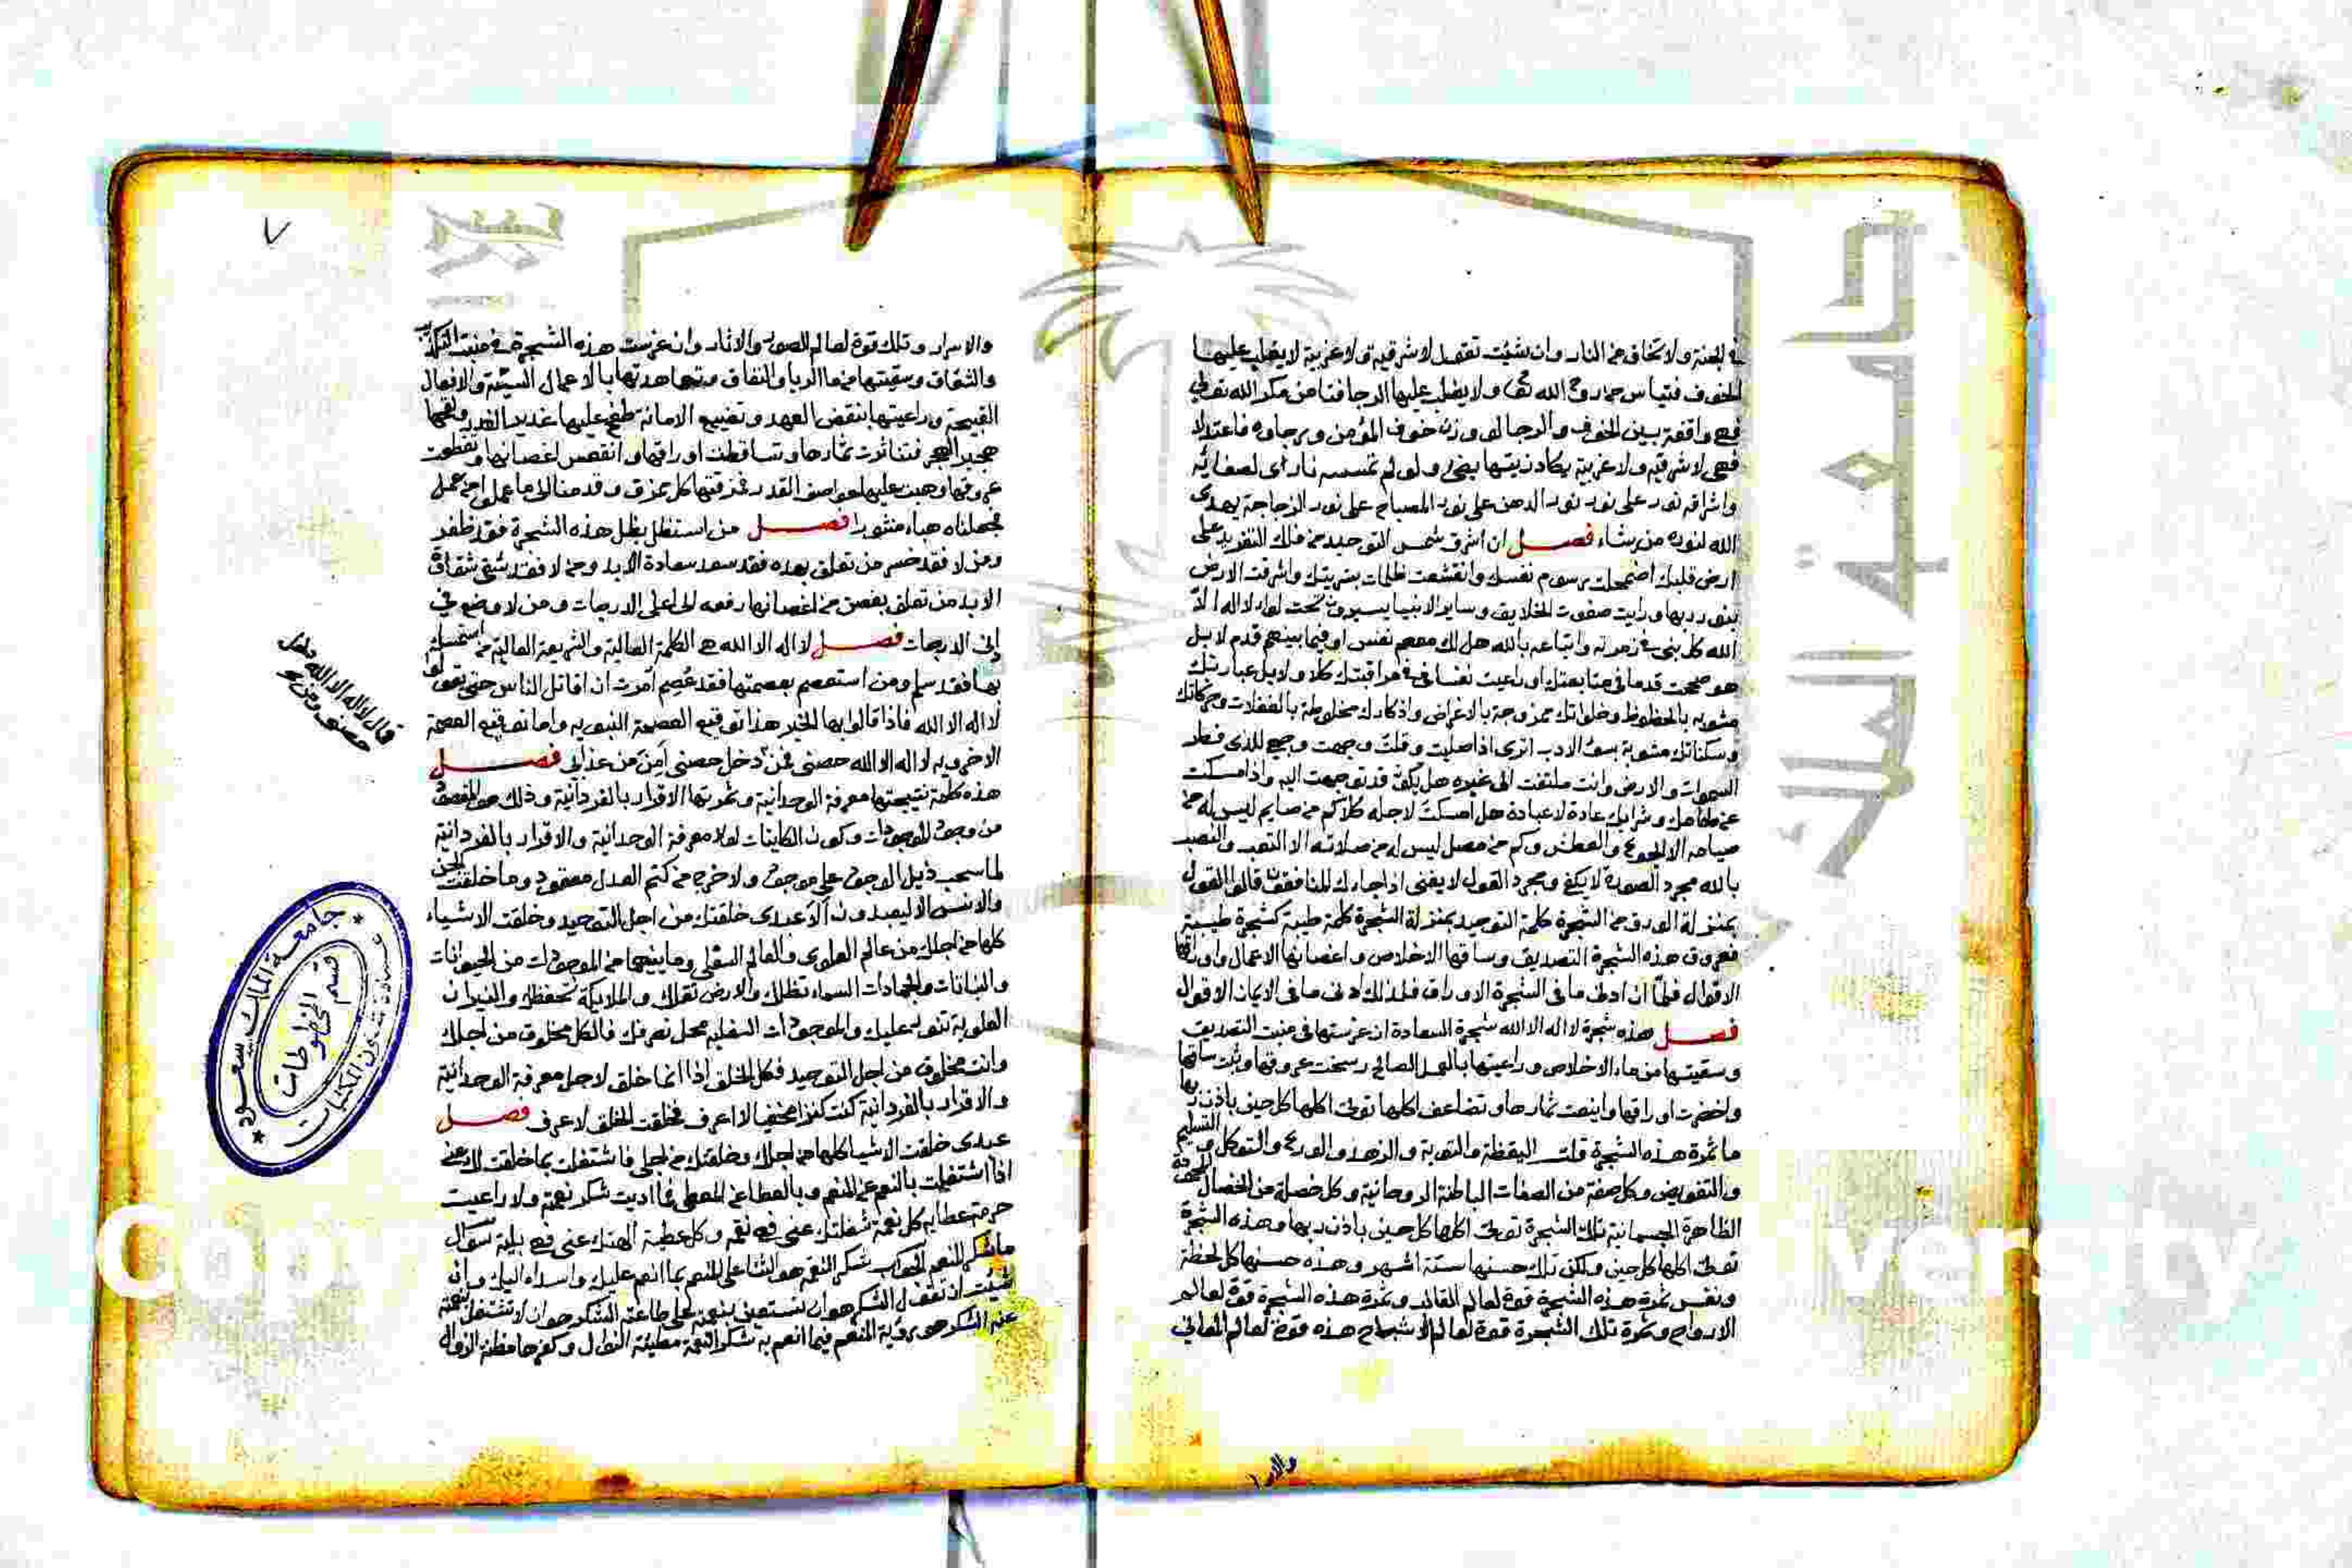 في الجنة ولا تخاف من النار وان شئت تقول لا شرقية ولا غربية لا يغلب عليها
الخوف فتياس من روح الله تعا ولا يغلب عليها الرجا فتامن مكر الله تعالى
فهي واقفة بين الخوف والرجا لو وزن خوف المؤمن ورجاوه فاعتدلا
فهي لا شرقية ولا غربية يكاد زيتها يضي ولو لم تمسسه نار اى لصفائه
واشراقه نور على نور نور الدهن على نور المصباح على نور الزجاجة يهدى
الله لنوره من يشاء فصل ان اشرق شمس التوحيد من فلك التفريد على
ارض قلبك اضمحلت رسوم نفسك وانقشعت ظلمات بشريتك واشرقت الارض
بنور ربها ورايت صفوت الخلايق وساير الانبيا يسيرون تحت لواء لا اله الا
الله كل نبى في زمرته واتباعه بالله هل لك معهم نفس او فيما بينهم قدم لا بل
هو صححت قدما في متابعتك او راعيت نفسا في مراقبتك كلا ولا بل عبارتك
مشوبه بالحظوظ وخلواتك ممزوجة بالاغراض واذكارك مخلوطة بالغفلات وحركاتك
وسكناتك مشوبة بسوء الادب اترى اذا صليت وقلت وجهت وجهي للذى فطر
السموات والارض وانت ملتفت الى غيره هل تكون قد توجهت اليه واذا مسكت
عن طعامك وشرابك عادة لا عبادة هل امسكت لاجله كلا كم من صايم ليس له من
صيامه الا الجوع والعطش وكم من مصل ليس له من صلاته الا التعب والنصب
بالله مجرد الصورة لا يكفي ومجرد القول لا يغنى اذا جاءك المنافقون قالوا القول
بمنزلة الورق من الشجرة كلمة التوحيد بمنزلة الشجرة كلمة طيبة كشجرة طيبة
فعروق هذه الشجرة التصديق وساقها الاخلاص واغصانها الاعمال واوراقها
الاقوال فكما ان ادنى ما في الشجرة الاوراق فكذلك ادنى ما في الايمان الاقوال
فصل هذه شجرة لا اله الا الله شجرة السعادة ان غرستها في منبت التصديق
وسقيتها من ماء الاخلاص وراعيتها بالعمل الصالح رسخت عروقها وثبت ساقها
واخضرت اوراقها واينعت ثمارها وتضاعف اكلها توتى اكلها كل حين باذن ربها
ما ثمرة هذه الشجرة قلت اليقظة والتوبة والزهد والورع والتوكل والتسليم
والتفويض وكل صفة من الصفات الباطنة الروحانية وكل خصلة من الخصال
الظاهرة الجسمانية تلك الشجرة توتى اكلها كل حين باذن ربها وهذه الشجرة
توتى اكلها كل حين ولكن تلك حينها ستة اشهر وهذه حينها كل لحظة
ونفس ثمرة هذه الشجرة قوة لعالم القالب وثمرة هذه الشجرة قوة لعالم
الارواح وثمرة تلك الشجرة قوة لعالم الاشباح هذه قوة لعالم المعاني
والاسرا
٧
والاسرار وتلك قوة لعالم الصور والاثار وان غرست هذه الشجرة في منبت التكذيب
والشقاق وسقيتها من ما الريا والنفاق وتعاهدتها بالاعمال السيئة والافعال
القبيحة وراعيتها بنقض العهد وتضييع الامانة طفح عليها غدير الغدر ولفحها
هجير الهجر فتناثرت ثمارها وتساقطت اوراقها وانقعر اغصانها وتقطعت
عروقها وهبت عليها عواصف القدر فمزقتها كل ممزق وقدمنا الى ما عملوا من عمل
فجعلناه هباء منثورا فصل من استظل بظل هذه الشجرة فقد ظفر
ومن لا فقد خسر من تعلق بهده فقد سعد سعادة الابد ومن لا فقد شقى شقاوة
الابد من تعلق بغصن من اغصانها رفعه الى اعلى الدرجات ومن لا وضع في
ادنى الدرجات فصل لا اله الا الله هي الكلمة العالية والشريعة الغالية من استمسك
بها فقد سلم ومن استعصم بعصمتها فقد عصم أمرت ان اقاتل الناس حتى يقولوا
لا اله الا الله فاذا قالوا بها الخبر هذا توقيع العصمة النبويه واما توقيع العصمة
الاخرويه لا اله الا الله حصنى فمن دخل حصنى أمن من عذابى فصل
هذه كلمة نتيجتها معرفة الوحدانية وثمرتها الاقرار بالفردانية وذلك هو المقصود
من وجود الموجودات وكون الكاينات لولا معرفة الوحدانية والاقرار بالفردانية
لما سحب ذيل الوجود على موجود ولا خرج من كتم العدم مفقود وما خلقت الجن
والانس الا ليعبدون ألا عبدى خلقتك من اجل التوحيد وخلقت الاشياء
كلها من اجلك من عالم العلوى والعالم السفلى وما بينهما من الموجودات من الحيوانات
والنباتات والجمادات السماء تظلك والارض تقلك والملايكة تحفظك والنيران
العلوية تنور عليك والموجودات السفليه محل تصرفك فالكل مخلوق من اجلك
وانت مخلوق من اجل التوحيد فكل الخلق اذا انما خلق لاجل معرفة الوحدانية
والاقرار بالفردانية كنت كنزا مخفيا لا اعرف فخلقت الخلق لاعرف فصل
عبدى خلقت الاشيا كلها من اجلك وخلقتك من اجلى فاشتغلت بما خلقت لك عنى
اذا اشتغلت بالنعم عن المنعم وبالعطا عن المعطى فما اديت شكر نعمه ولا راعيت
حرمة عطايه كل نعمة شغلتك عنى فهي نقم وكل عطية الهتك عنى فهي بلية سؤال
ما شكر المنعم الجواب شكر المنعم هو الثنا على المنعم بما انعم عليك واسداه اليك وان
شئت ان تقول الشكر هو ان تستعين بنعمه على طاعته الشكر هو ان لا تشتغل بنعمته
عنه الشكر هو روية المنعم فيما انعم به شكر النعمة مطية النوال وكفرها مظنة الزوال
قال لا اله الا الله
جامعة الملك سعود
قسم المخطوطات
عمادة شئون المكتبات
جامعة الملك
Cop
versity